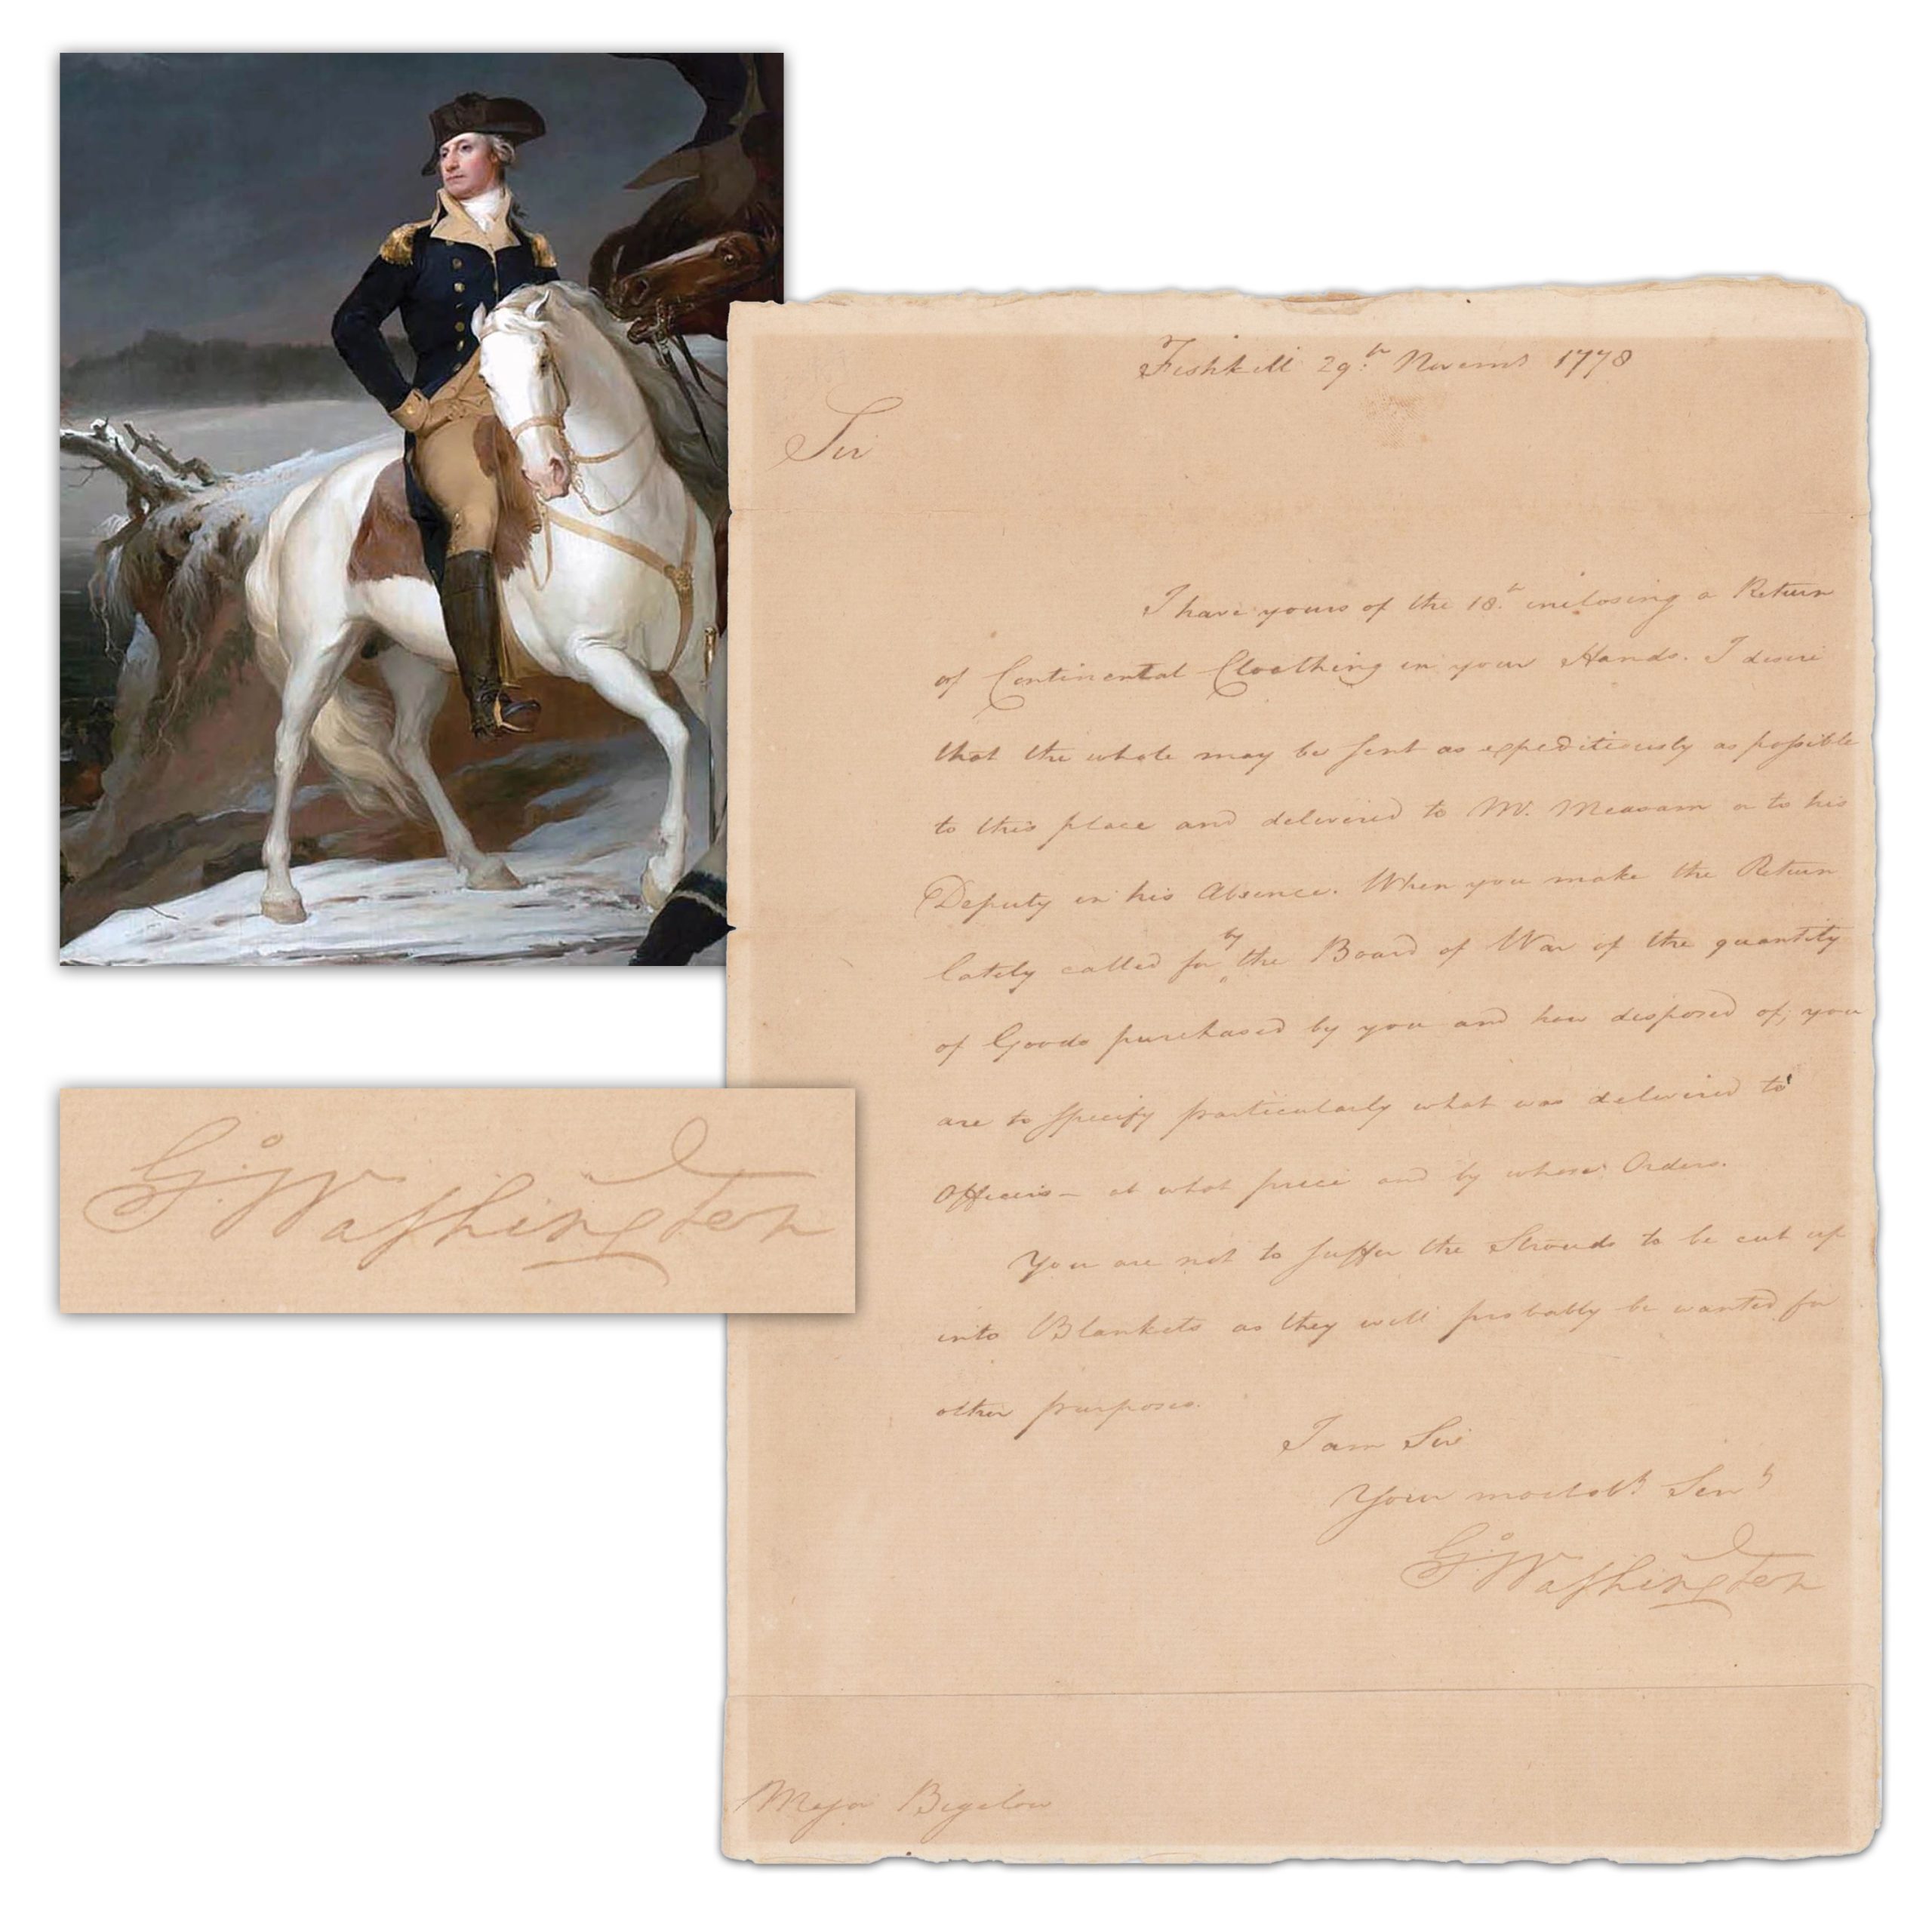 Fishkill 29th. Novemr 1778
Sir
I have yours of the 18th. inclosing a Return
of Continental Cloathing in your Hands. I desire
that the whole may be sent as expeditiously as possible
to this place and delivered to Mr. Measam or to his
Deputy in his Absence. When you make the Return
lately called for by the Board of War of the quantity
of Goods purchased by you and how disposed of; you
are to specify particularly what was delivered to
Officers - at what price and by whose Orders.
You are not to suffer the Strouds to be cut up
into Blankets as they will probably be wanted for
other purposes.
I am Sir
Your most obt Servt
Go: Washington
Major Bigelow
Go: Washington